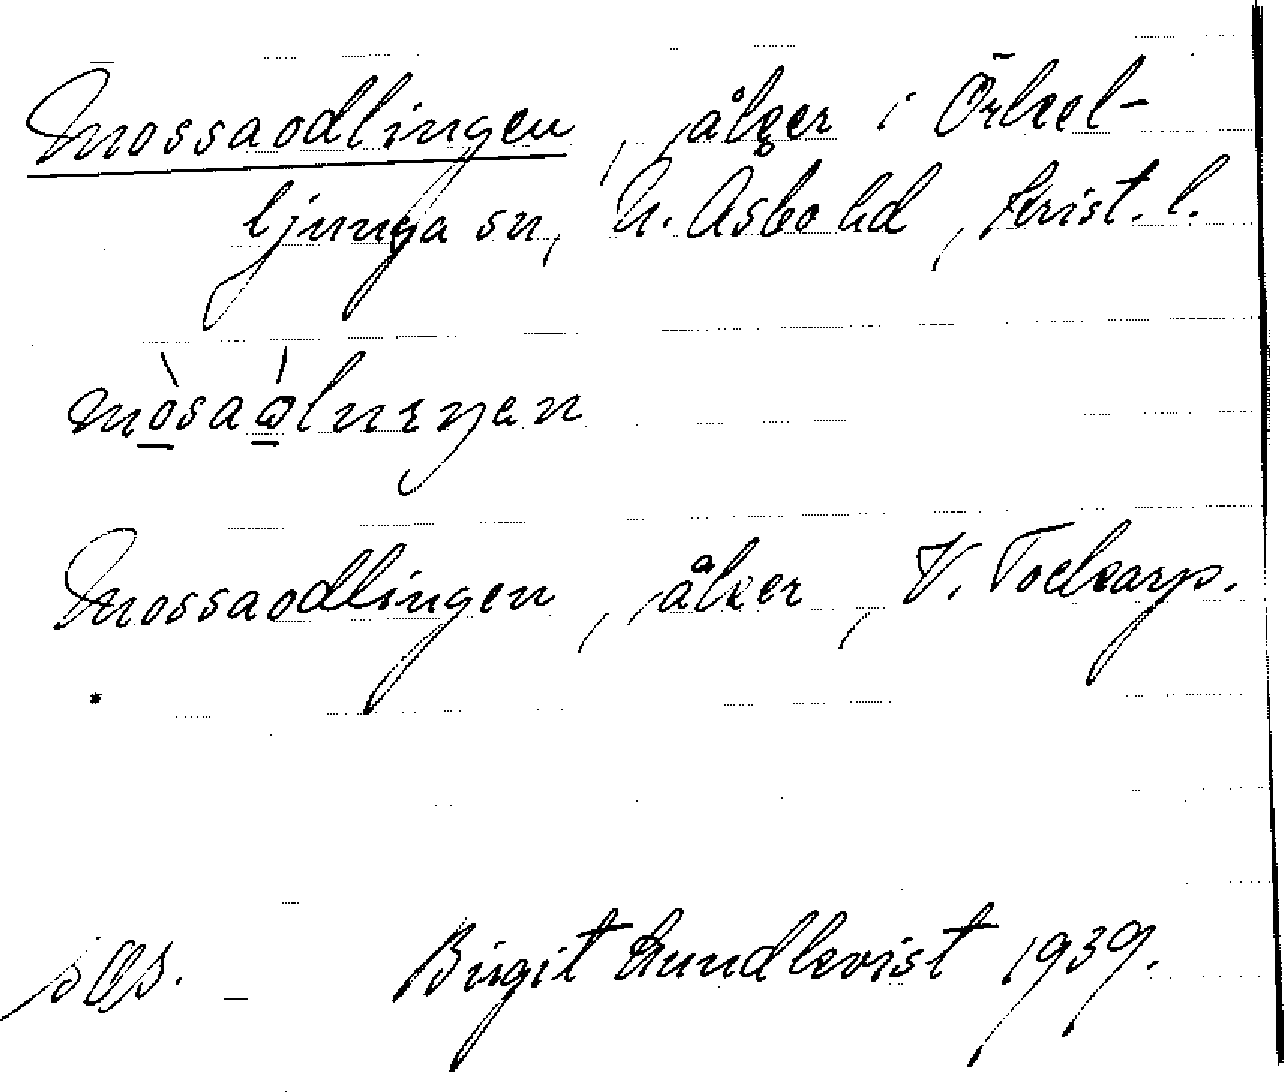 Mossaodlingen, åker i Örkel-
ljunga sn, N. Åsbo hd, Krist. l.
mòsaólnıŋen
Mossaodlingen, åker, V. Tockarp.
Birgit Lundkvist 1939.